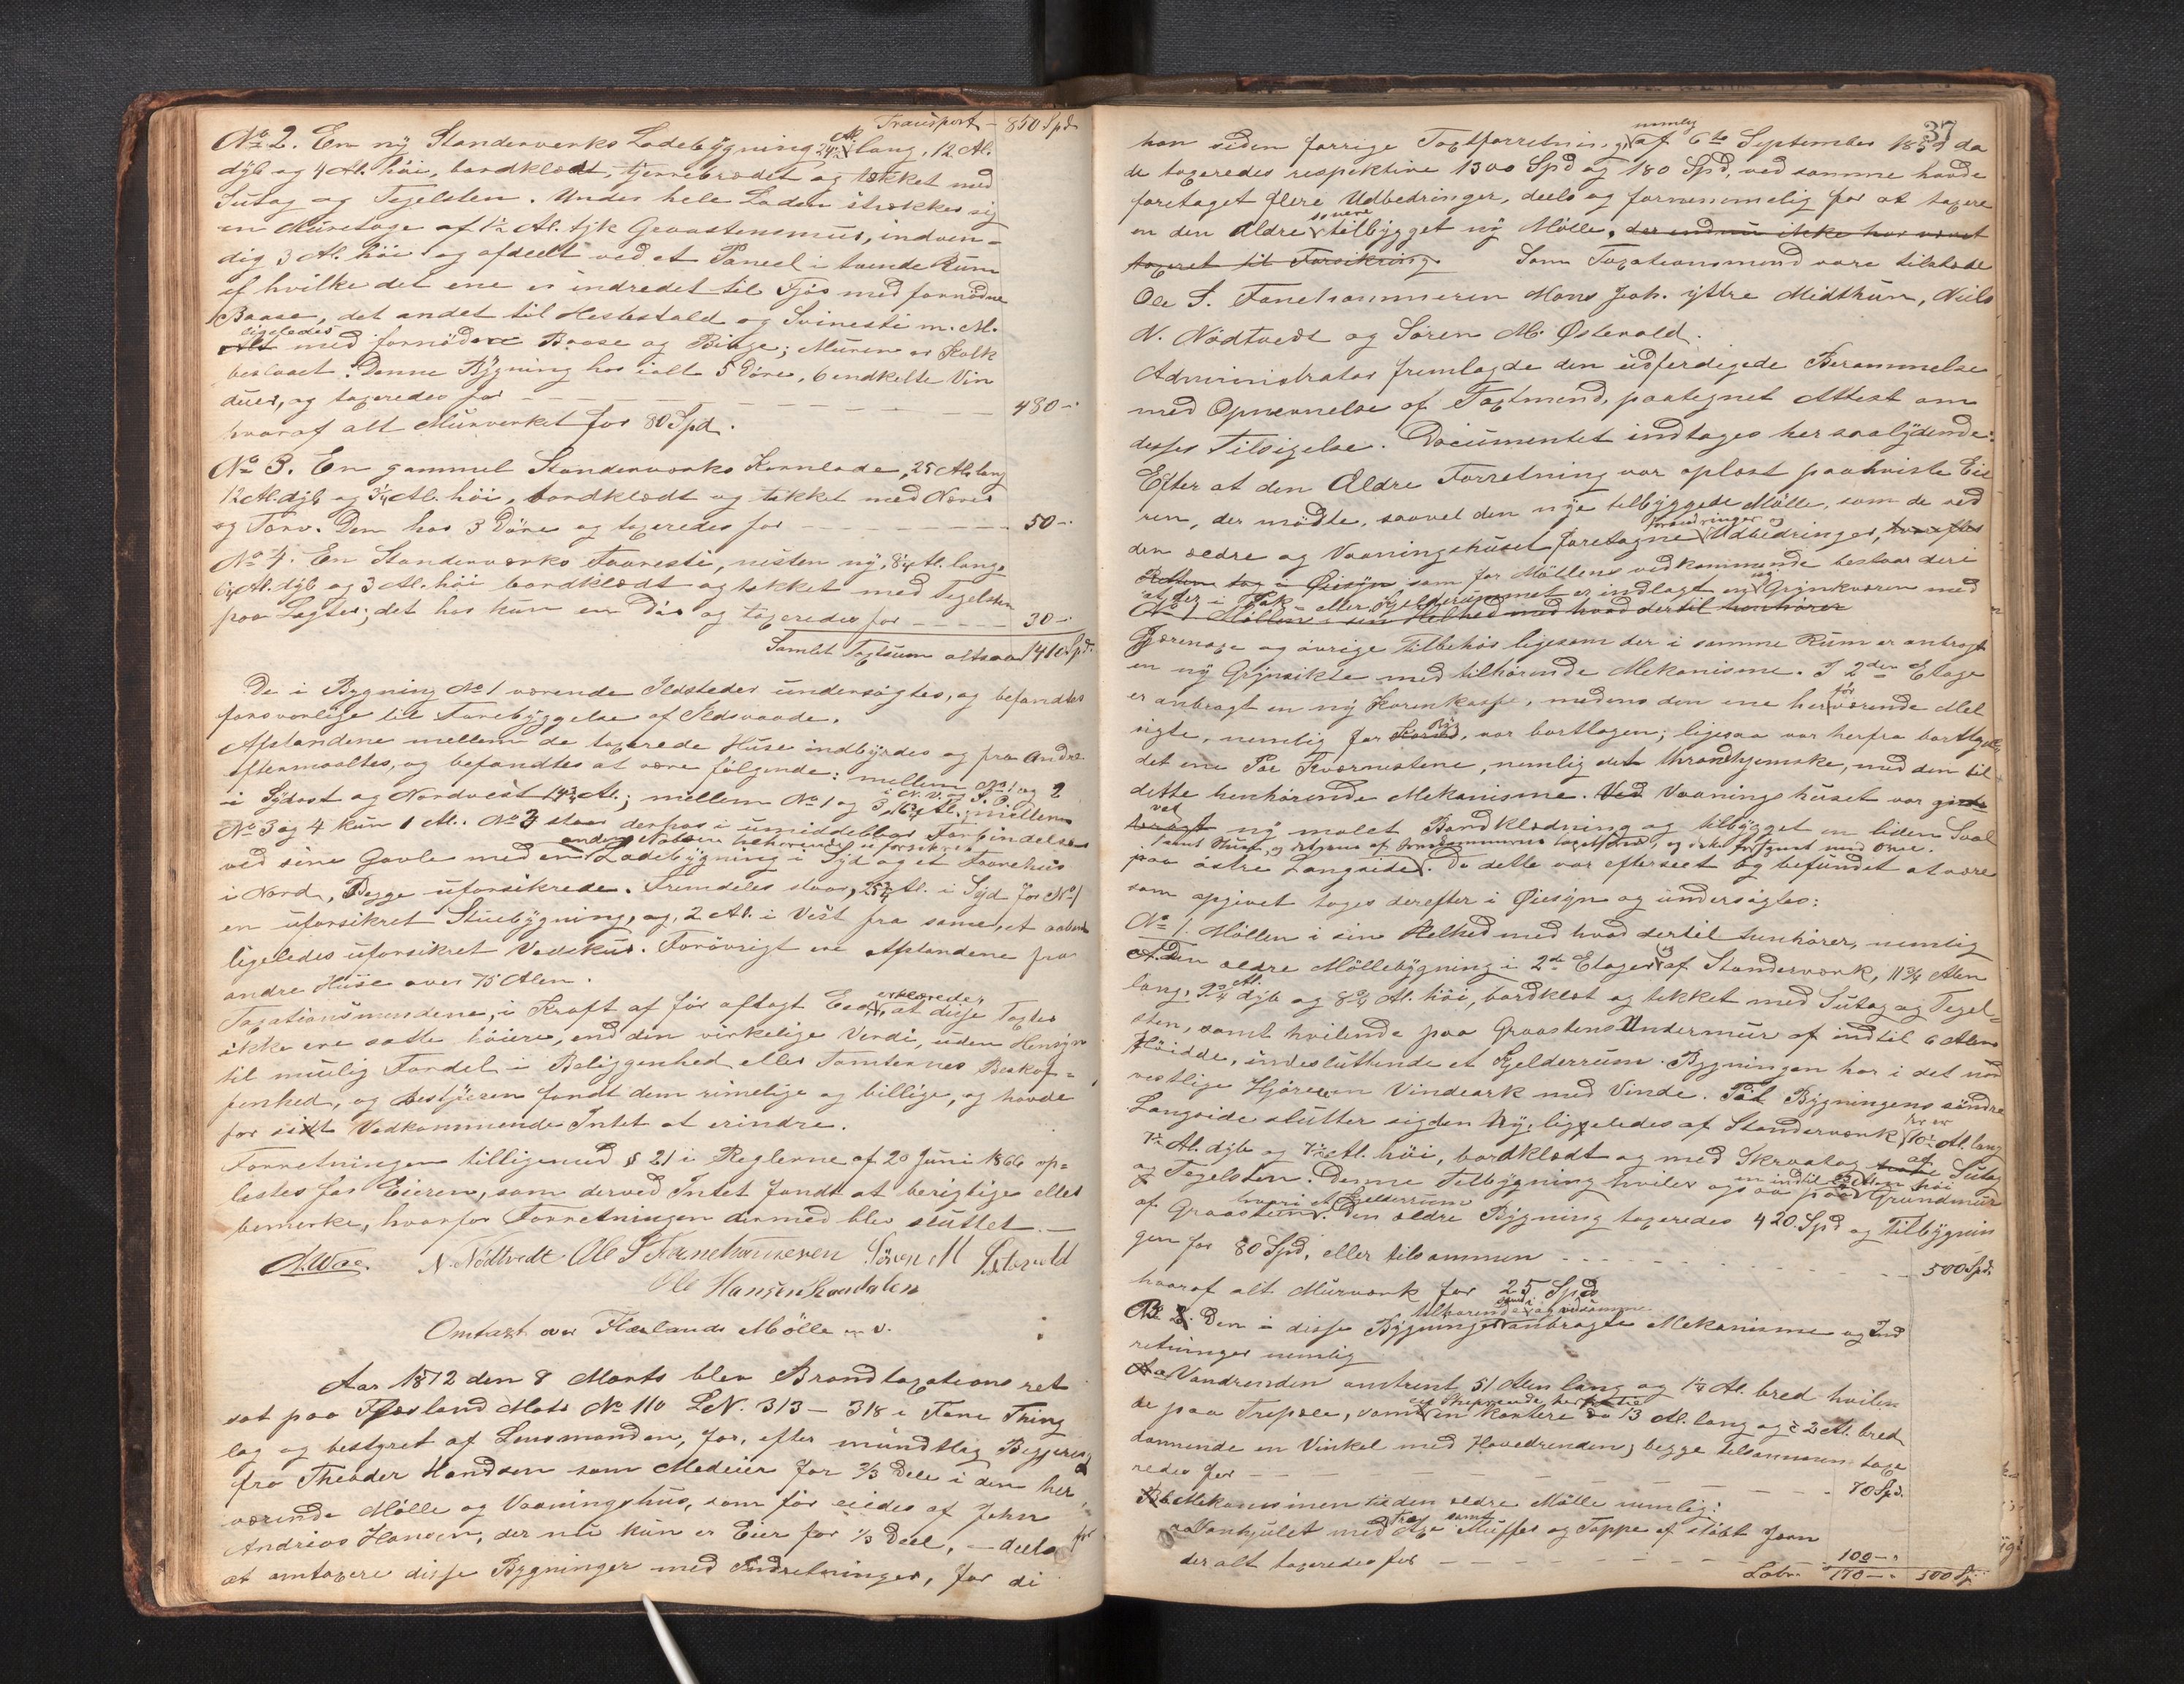 Transport - 850 Spd
No 2. En ny Standerverks Ladebÿgning 24 Al. lang, 12 Al.
dÿb og 4 Al. höi, bordklædt, tjerrebrædet og tækket med
Sutag og Tegelsten. Under hele Laden strækker sig
en Muretage af 1½ Al. tÿk Graastensmur, indven-
dig 3 Al. höi og afdeelt ved et Paneel i tvende Rum
af hvilke det ene er indredet til Fjös med fornødne
Baase, det andet til Hestestald og Svinesti m. M.
ligeledes
med fornødne Baase og Binge; Muren er Kalk
beslaaet. Denne Bÿgning har ialt 5 Döre, 6 enkelte Vin
duer, og taxeredes for - - - 480 -
hvoraf alt Murverket for 80 Spd.
No 3. En gammel Standerværks Kornlade, 25 Al. lang
12 Al. dÿb og 3¼ Al. höi, bordklædt og tækket med Næver
og Törv. Den har 3 Döre og taxeredes for - - - 50 -
No 4. En Standerværks Faaresti, næsten nÿ, 8¼ Al. lang
6¼ Al. dÿb og 3 Al. höi bordklædt og tækket med Tegelsten
paa Lægter; det har kun en Dör og taxeredes for - - - 30 -
Samlet Taxtsum altsaa 1410 Spd.
De i Bygning No 1 værende Ildsteder undersögtes, og befandtes
forsvarlige til Forebÿggelse af Ildsvaade.
Afstandene mellem de taxerede Huse indbÿrdes og fra Andre
eftermaaltes, og befandtes at være fölgende: mellem No 1 og 2
i Sÿdost og Nordvest 14¾ Al.; mellem No 1 og 3 i N.V. og S.O. 16¾ Al.; mellem
No 3 og 4 kun 1 Al. No 3 staar derhos i umiddelbar Forbindelse
ved sine Gavle med en anden Naboen tilhørende uforsikret Ladebÿgning i Sÿd og et Faarehus
i Nord, Begge uforsikrede. Fremdeles staar, 25¾ Al. i Sÿd for No 1
en uforsikret Stuebÿgning, og, 2 Al. i Vest fra samme, et aabent
ligeledes uforsikret Vedskur. Forövrigt ere Afstandene fra
andre Huse over 75 Alen.
Taxationsmændene, i Kraft af för aflagt Eed, erklærede, at disse Taxter
ikke ere satte höiere, end den virkelige Verdi, uden Hensÿn
til muelig Fordel i Beliggenhed eller Tomternes Beskaf=
fenhed, og Bestÿreren fandt dem rimelige og billige, og havde
for sidt Vedkommende Intet at erindre.
Forretningen tilligemed § 21 i Reglerne af 20 Juni 1866 op=
læstes for Eieren, som derved Intet fandt at berigtige eller
bemerke, hvorfor Forretningen dermed blev sluttet. -
N. Nödtvedt Ole S Fanehammeren Sören M Østervold
Ole Hansen
Omtaxt over Flæslands Mölle m. v.
Aar 1872 den 8 Marts blev Brandtaxations ret
sat paa Flæsland Matr No 110 LN. 313 - 318 i Fane Thing
lag og bestyret af Lensmanden, for, efter mundtlig Begjæring
fra Theodor Handsen som Medeier for ⅔ Dele i den her
værende Mölle og Vaaningshus, som för eiedes af John
Andreas Hansen, der nu kun er Eier for ⅓ Deel, - deels for
at omtaxere disse Bygninger med Indretninger, for di
37
han siden forrige Taxtforretning, nemlig af 6te September da
de taxeredes respektive 1300 Spd og 180 Spd, ved samme havde
foretaget flere Udbedringer, deels og fornemmelig for at taxere
en den Ældre senere tilbÿgget nÿ Mölle, der endnu ikke har været
taxeret til Forsikring. Som Taxationsmænd vare tilstede
Ole S. Fanehammeren Mons Joh. ÿttre Midthun, Niels
N. Nödtvedt og Sören M. Østervold.
Administrator fremlagde den udferdigede Berammelse
med Opnævnelse af Taxtmænd, paategnet Attest om
desses Tilsigelse. Documentet indtages her saalÿdende:
Efter at den Ældre Forretning var oplæst paaviste Eie
ren, der mödte, saavel den nÿe tilbÿggede Mölle, som de ved
den ældre og Vaaningshuset foretagne Forandringer og Udbedringer, hvorefter
Retten tog i Öiesÿn som for Möllens vedkommende bestaar deri
at der i Pak- eller Kjelderrummet er indlagt en nÿ Grÿnkværn med
No 1 Möllen i sin Helhed med hvad dertil henhörer
Fjærenage og övrige Tilbehör ligesom der i samme Rum er anbragt
en nÿ Grÿnsikte med tilhörende Mekanisme. I 2den Etage
er anbragt en nÿ Kornkasse, medens den ene her för værende Mel
sigte, nemlig for Rug, var borttagen; ligesaa var herfra borttaget
det ene Par Kværnstene, nemlig det throndhjemske, med den til
dette henhörende Mekanisme. Vaaningshuset var
ved nÿ malet Bordklædning og tilbÿgget en liden Sval
paa östre Langside. Da dette var efterseet og befundet at være
som opgivet toges derefter i Öiesÿn og undersögtes:
No 1. Möllen i sin Helhed med hvad dertil henhörer, nemlig
A. Den ældre Möllebÿgning i 2de Etager og af Standerværk, 11¾ Alen
lang, 9¾ Al. dÿb og 8¾ Al. höi, bordklæt og tækket med Sutag og Tegel=
sten, samt hvilende paa Graastens Undermur af indtil 6 Alens
Höidde, indesluttende et Kjelderrum. Bygningen har i det nord
vestlige Hjörne en Vindeark med Vinde. Til Bÿgningens söndre
Langside slutter sig den Nÿ, ligeledes af Standerværk, der er 10½ Al. lang
7½ Al. dÿb og 7½ Al. höi, bordklædt og med Skraatag af Sutag
og Tegelsten. Denne Tilbÿgning hviler ogsaa paa en indtil Alen höi Grundmur
af Graasten, hvori et Kjelderrum. Den ældre Bÿgning taxeredes 420 Spd og Tilbÿgnin
gen for 80 Spd, eller tilsammen - - - 500 Spd.
hvoraf alt Murværk for 25 Spd
B. Den i disse Bÿgninger tilhörende anbragte Mekanisme og Ind
retninger nemlig
a Vandrenden omtrent 51 Alen lang og 1½ Al. bred hvilen
de paa Træpæle, samt en kortere 13 Al. lang og 2 Al. bred
dannende en Vinkel med Hovedrenden; begge tilsammen taxe
redes for - - - 70 Spd.
b Mekanismen til den ældre Mölle nemlig:
Vandhjulet med Træ Axe samt Muffer og Tappe af stöbt Jern
der alt taxeredes for - - - 100 -
Latus 170 - 500 Sp